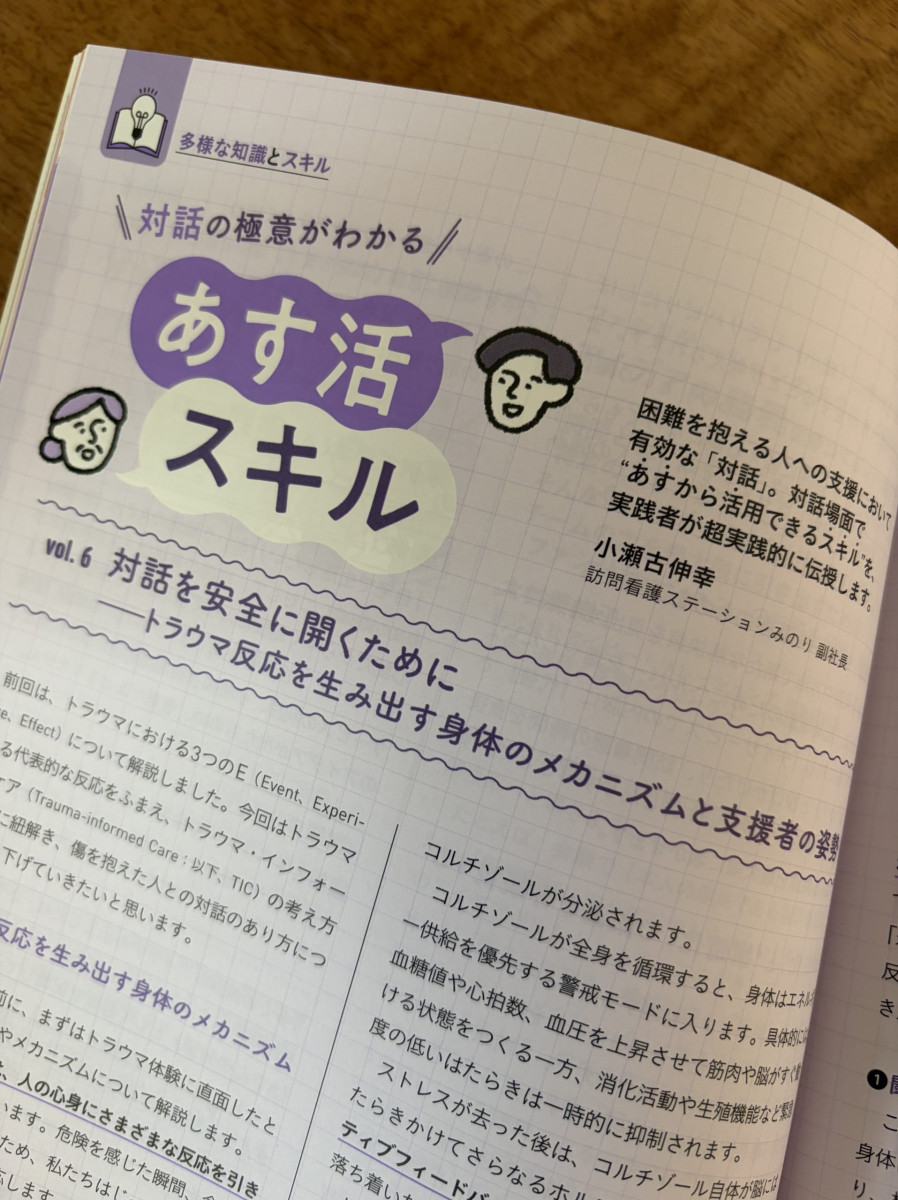 多様な知識とスキル
対話の極意がわかる
あす活
スキル
困難を抱える人への支援において
有効な「対話」。対話場面で
“あすから活用できるスキル”を、
実践者が超実践的に伝授します。
小瀬古伸幸
訪問看護ステーションみのり 副社長
vol. 6 対話を安全に開くために
──トラウマ反応を生み出す身体のメカニズムと支援者の姿勢
前回は、トラウマにおける3つのE（Event、Experi-
e、Effect）について解説しました。今回はトラウマ
る代表的な反応をふまえ、トラウマ・インフォー
ケア（Trauma-informed Care：以下、TIC）の考え方
に紐解き、傷を抱えた人との対話のあり方につ
下げていきたいと思います。
反応を生み出す身体のメカニズム
前に、まずはトラウマ体験に直面したと
やメカニズムについて解説します。
、人の心身にさまざまな反応を引き
います。危険を感じた瞬間、
ため、私たちはじ
応します。
コルチゾールが分泌されます。
コルチゾールが全身を循環すると、身体はエネルギ
ー供給を優先する警戒モードに入ります。具体的には
血糖値や心拍数、血圧を上昇させて筋肉や脳がすぐ動
ける状態をつくる一方、消化活動や生殖機能など緊急
度の低いはたらきは一時的に抑制されます。
ストレスが去った後は、コルチゾール自体が脳には
たらきかけてさらなるホル
ティブフィードバ
落ち着いた
「
反
き
❶
こ
身体
り、